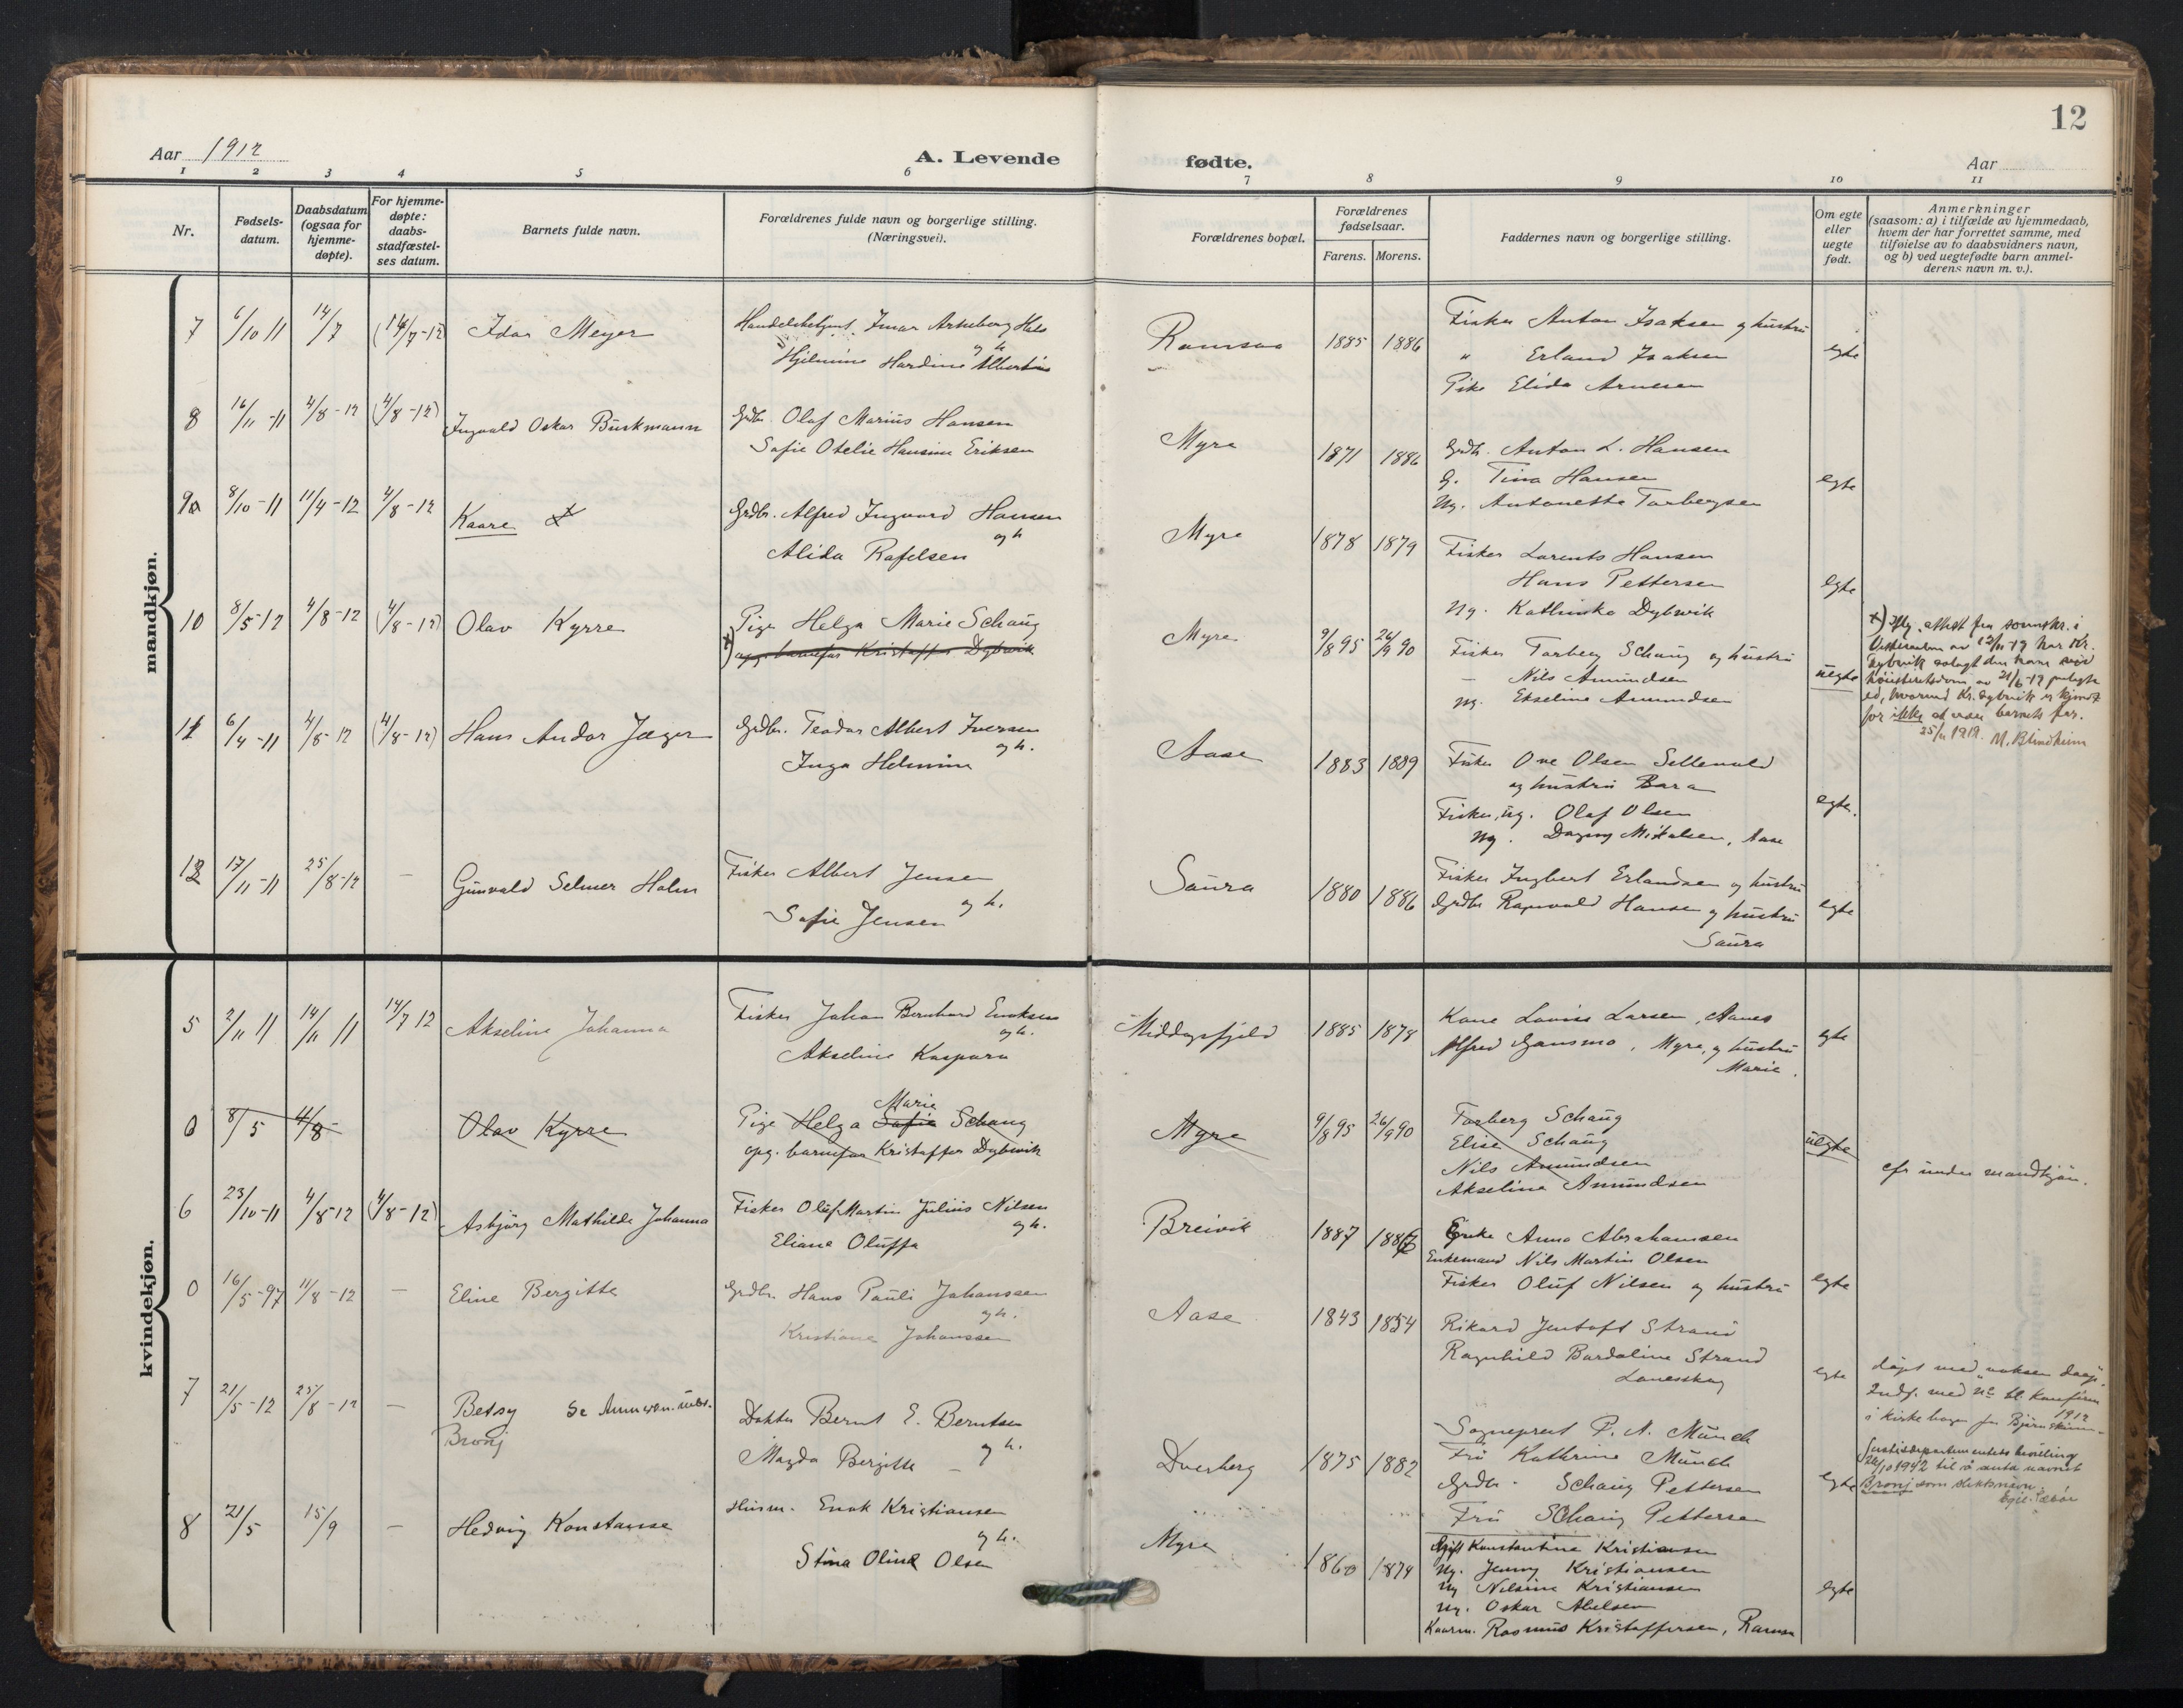 12
Aar 1912
A. Levende
fødte.
Aar
1 2 3 4 5 6 7 8 9 10 11
Nr.
Fødsels-
datum.
Daabsdatum
(ogsaa for
hjemme-
døpte).
For hjemme-
døpte:
daabs-
stadfæstel-
ses datum.
Barnets fulde navn.
Forældrenes fulde navn og borgerlige stilling.
(Næringsvei).
Forældrenes bopæl.
Forældrenes
fødselsaar.
Farens. Morens.
Faddernes navn og borgerlige stilling.
Om egte
eller
uegte
født.
Anmerkninger
(saasom: a) i tilfælde av hjemmedaab,
hvem der har forrettet samme, med
tilføielse av to daabsvidners navn,
og b) ved uegtefødte barn anmel-
derens navn m. v.).
mandkjøn.
7 6/10 11 14/7 (14/7-12 Idar Meyer
og h.
Hjelmine Hardine Albertine
Ramsaa 1885 1886
Fisker Anton Isaksen og hustru
" Erland Isaksen
Pike Elida Arnesen
egte
8 16/11-11 4/8-12 (4/8-12) Ingvald Oskar Burkmann
Grdbr. Olaf Marius Hansen
Sofie Otelie Hansine Eriksen
Myre 1871 1886
Grdb. Anton L. Hansen
G. Tina Hansen
Ug. Antonette Torbergsen
egte
9 8/10-11 11/4-12 4/8-12 Kaare
Grdbr. Alfred Ingvard Hansen
og h
Alida Rafelsen
Myre 1878 1879
Fisker Lorents Hansen
Hans Pettersen
Ug. Kathinka Dybwik
egte
10 8/5-12 4/8-12 (4/8-12) Olav Kyrre
Pige Helga Marie Schaug
opg. barnefar Kristoffer Dybwik
Myre 9/8 95 26/9 90
Fisker Torberg Schaug og hustru
— Nils Amundsen
Ug. Ekseline Amundsen
uegte
for ikke at være barnets far.
25/11 1919. M. Blindheim
11 6/4-11 4/8-12 (4/8-12) Hans Andor Jæger
Grdbr. Teodor Albert Iversen
og h.
Inga Helmine
Aase 1883 1889
Fisker Ove Olsen Sellevold
og hustru Bara
Fisker, ug. Olaf Olsen
Ug. Dagny Mikalsen, Aase
egte.
12 17/11-11 25/8-12 — Gunvald Selmer Holm
Fisker Albert Jensen
og h.
Sofie Jensen
Saura 1880 1886
Fisker Ingbert Erlandsen og hustru
Grdbr Ragnvald Hansen og hustru
Saura
egte
kvindekjøn.
5 2/11 11 14/11 11 14/7 12 Akseline Johanna
Fisker Johan Bernhard Enoksen
og h.
Akseline Kaspara
Middagsfjeld 1885 1878
Kone Lovise Larsen, Aanes
Alfred Gansmo, Myre, og hustru
Marie.
egte
0 8/5 4/8 Olav Kyrre
Marie
Pige Helga Sofie Schaug
opg. barnefar Kristoffer Dybwik
Myre 9/8 95 26/9 90
Torberg Schaug
Elise Schaug
Nils Amundsen
Akseline Amundsen
uegte
cfr under mandkjøn.
6 23/10-11 4/8-12 (4/8-12) Asbjørg Mathilde Johanna
Fisker Oluf Martin Julius Nilsen
og h.
Eliane Oluffa
Breivik 1887
Enke Anna Abrahamsen
Enkemand Nils Martin Olsen
Fisker Oluf Nilsen og hustru
egte
0 16/5-97 11/8-12 — Eline Bergitte
Grdbr. Hans Pauli Johanssen
og h.
Kristiane Johanssen
Aase 1843 1854
Rikard Jentoft Strand
Ragnhild Bardoline Strand
Lanesskog
egte
døpt med voksen daap.
1912
7 21/5-12 25/8-12 — Betsy
Bronj
Doktor Bernt E. Berntsen
og h.
Magda Bergitte —
Dverberg 1875 1882
Sogneprest P. A. Münch
Fru Kathrine Münch
Grdbr. Schaug Pettersen
Fru Schaug Pettersen
egte
Justisdepartementets bevilling
1942 til å anta navnet
Bronj som slektsnavn.
8 21/5 15/9 — Hedvig Konstanse
Husm. Enok Kristiansen
og h.
Stina Oline Olsen
Myre 1860 1874
Gift Konstantine Kristiansen
Ug. Jenny Kristiansen
Ug Nilsine Kristiansen
Ug. Oskar Abelsen
Kaarm. Rasmus Kristoffersen, Ramsa
egte